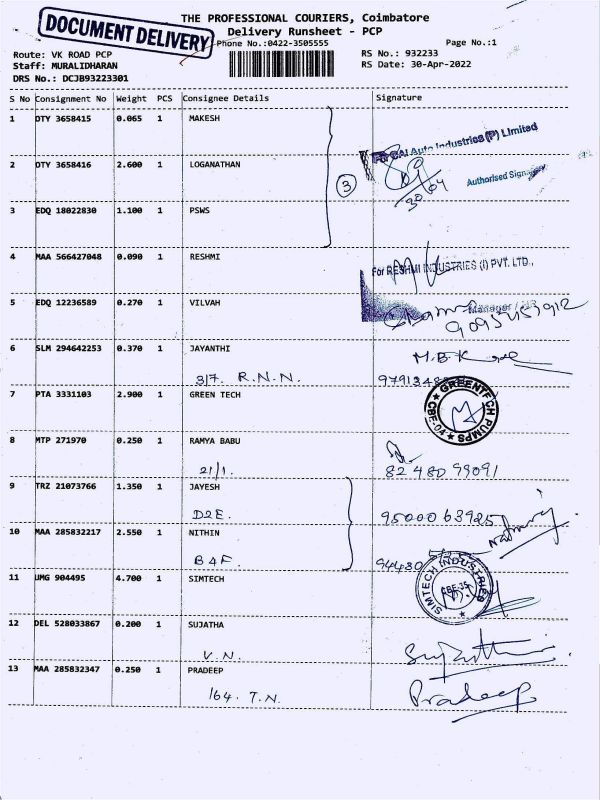 DOCUMENT DELIVERY
THE PROFESSIONAL COURIERS, Coimbatore
Delivery Runsheet - PCP
Phone No.:0422-3505555
Page No.:1
Route: VK ROAD PCP
RS No.: 932233
Staff: MURALIDHARAN
RS Date: 30-Apr-2022
DRS No.: DCJB93223301
S No Consignment No Weight PCS Consignee Details Signature
1 DTY 3658415 0.065 1 MAKESH
Auto Industries (P) Limited
2 DTY 3658416 2.600 1 LOGANATHAN
3
Authorised
30/04
3 EDQ 18022830 1.100 1 PSWS
4 MAA 566427048 0.090 1 RESHMI
For RESHMI INDUSTRIES (I) PVT. LTD.,
5 EDQ 12236589 0.270 1 VILVAH
Manager
6 SLM 294642253 0.370 1 JAYANTHI
M.B.K
317. R.N.N.
7 PTA 3331103 2.900 1 GREEN TECH
GREENTECH PUMPS
CBE-04
8 MTP 271970 0.250 1 RAMYA BABU
21/1.
82480 99091
9 TRZ 21073766 1.350 1 JAYESH
D2E.
95000 63925
10 MAA 285832217 2.550 1 NITHIN
B4F.
94430
11 UMG 904495 4.700 1 SIMTECH
SIMTECH INDUSTRIES
CBE-35
12 DEL 528033867 0.200 1 SUJATHA
V.N.
13 MAA 285832347 0.250 1 PRADEEP
Pradeep
164. T.N.